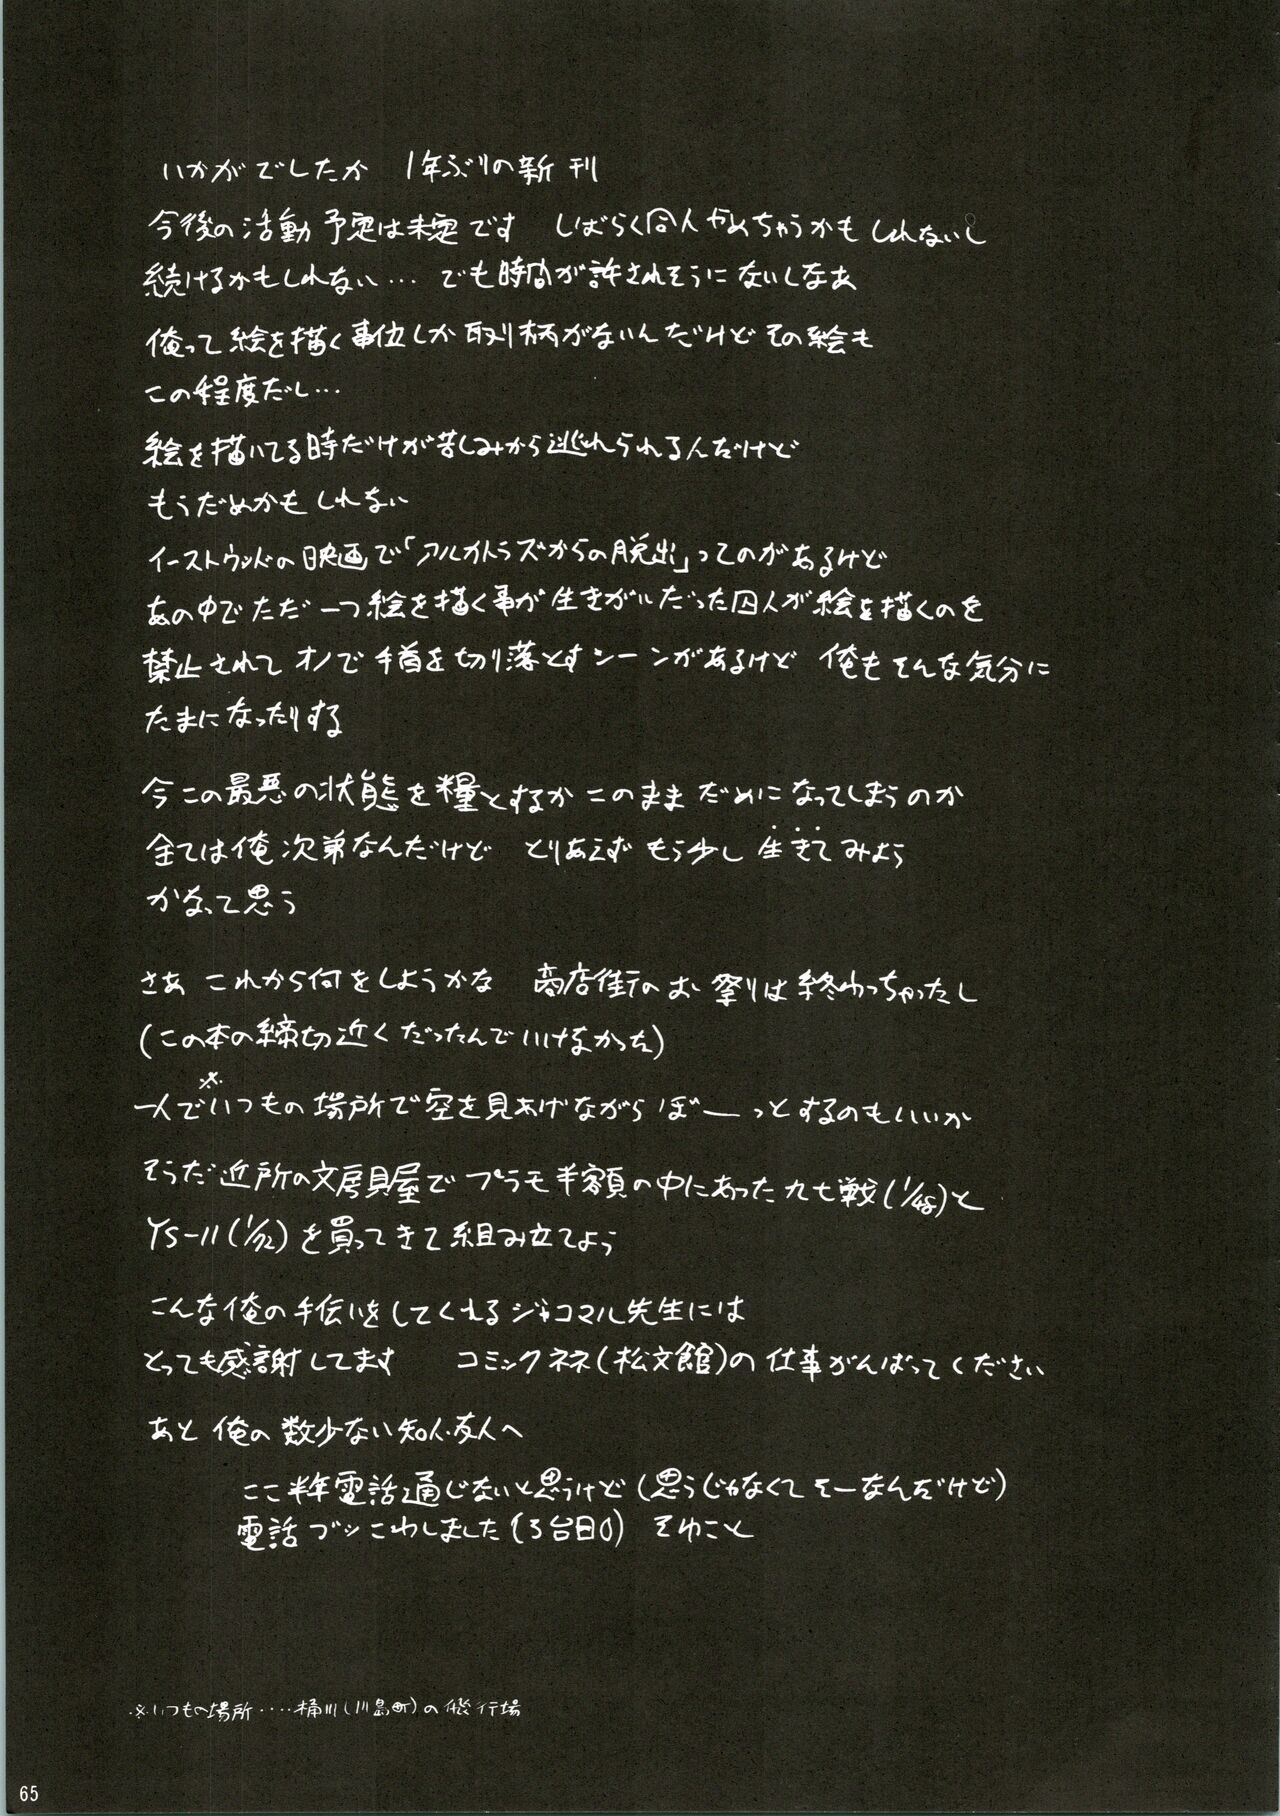 いかがでしたか　1年ぶりの新刊
今後の活動予定は未定です　しばらく同人やめちゃうかもしれないし
続けるかもしれない… でも時間が許されそうにないしなあ
俺って絵を描く事位しか取り柄がないんだけどその絵も
この程度だし…
絵を描いてる時だけが苦しみから逃れられるんだけど
もうだめかもしれない
イーストウッドの映画で「アルカトラズからの脱出」ってのがあるけど
あの中でただ一つ絵を描く事が生きがいだった囚人が絵を描くのを
禁止されてオノで手首を切り落とすシーンがあるけど　俺もそんな気分に
たまになったりする
今この最悪の状態を糧とするかこのままだめになってしまうのか
全ては俺次第なんだけど　とりあえずもう少し生きてみよう
かなって思う
さあ これから何をしようかな　商店街のお祭りは終わっちゃったし
(この本の締切近くだったんでいけなかった)
一人で※いつもの場所で空を見あげながらぼーっとするのもいいか
そうだ近所の文房具屋でプラモ半額の中にあった九七戦(1/48)と
YS-11(1/72)を買ってきて組み立てよう
こんな俺の手伝いをしてくれるジャコマル先生には
とっても感謝してます　コミックネネ(松文館)の仕事がんばってください
あと 俺の数少ない知人・友人へ
ここ半年電話通じないと思うけど(思うじゃなくてそーなんだけど)
電話ブッこわしました(3台目)　そゆこと
※いつもの場所‥‥桶川(川島町)の飛行場
65